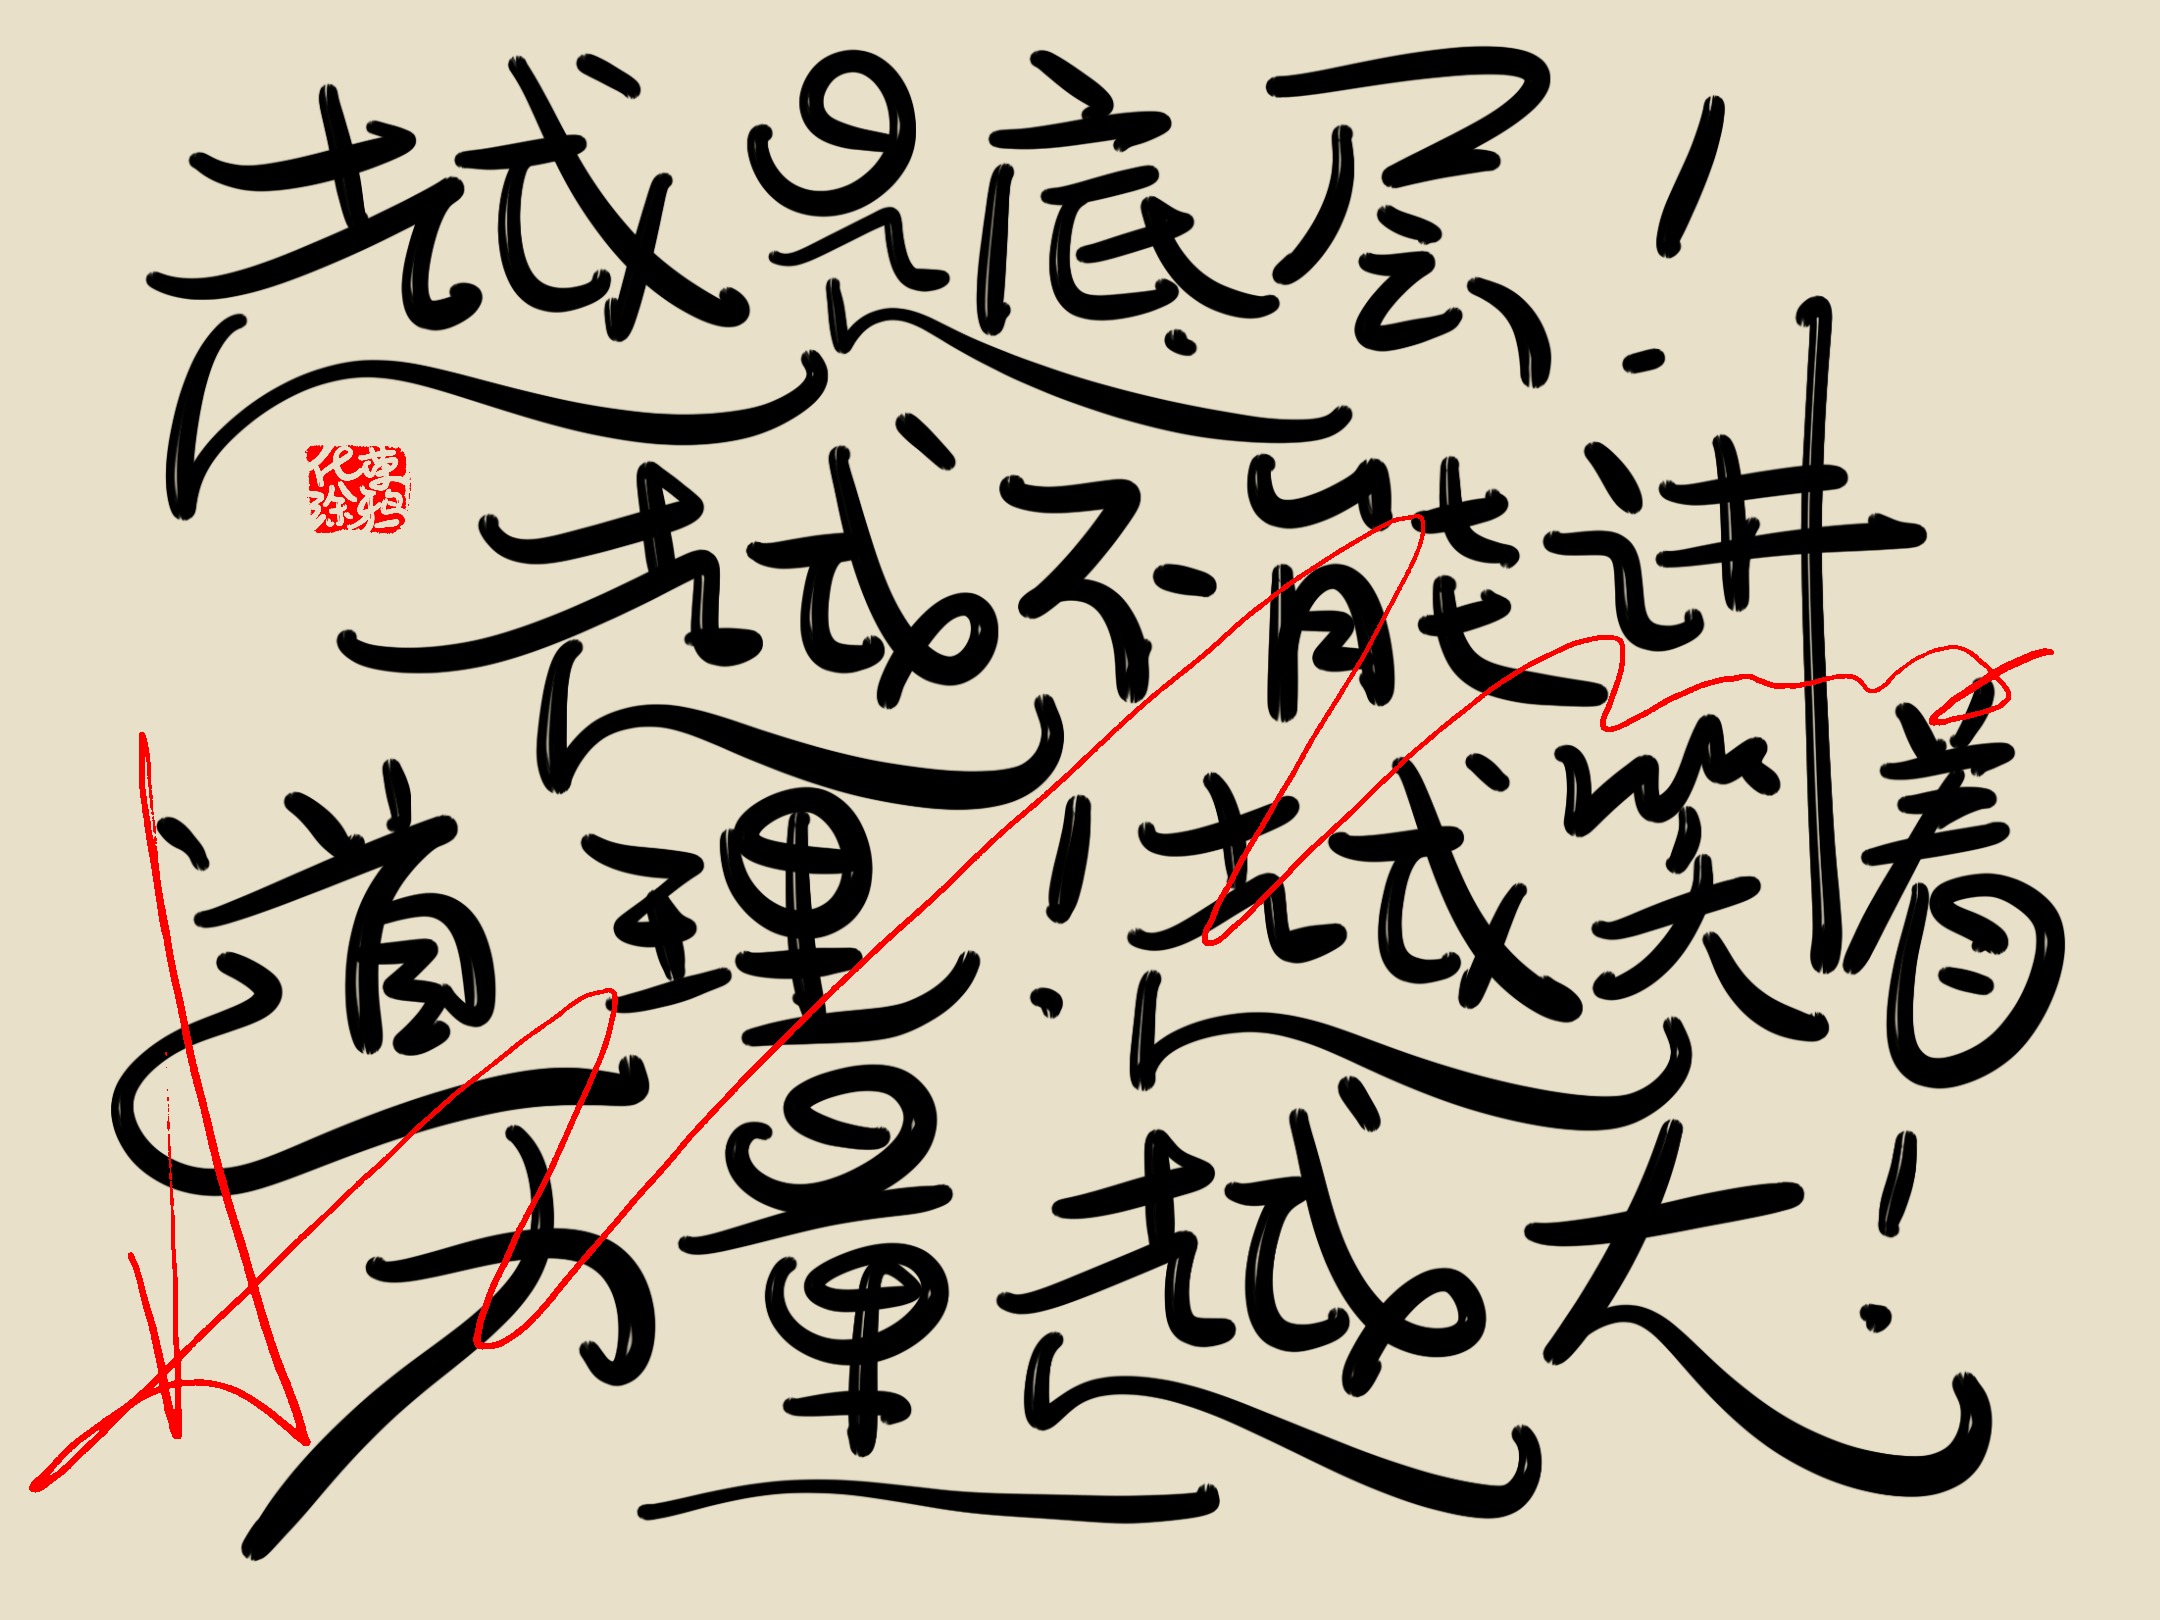 越是底层!
越不能讲
道理!越笑着
力量越大!